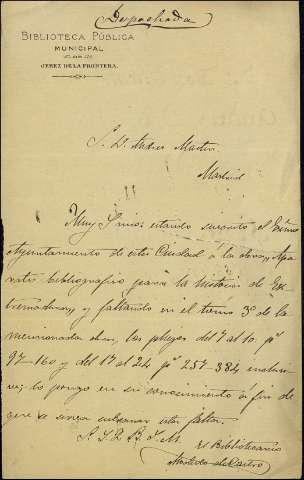 Despachada
BIBLIOTECA PÚBLICA
MUNICIPAL
JEREZ DE LA FRONTERA.
S. D. Xavier Martin
Madrid
Muy Sr. mio: estando suscrito el Excmo
Ayuntamiento de esta Ciudad á la obra, Apa-
rato bibliografico para la historia de Ex-
tremadura, y faltando en el tomo 3º de la
mencionada obra, los pliegos del 7 al 10. pª
97-160 y del 17 al 24 pª 257-384 inclusi-
ve; lo pongo en su conocimiento á fin de
que se sirva subsanar esta falta.
S. S. Q. B. S. M.
El Bibliotecario
de Castro